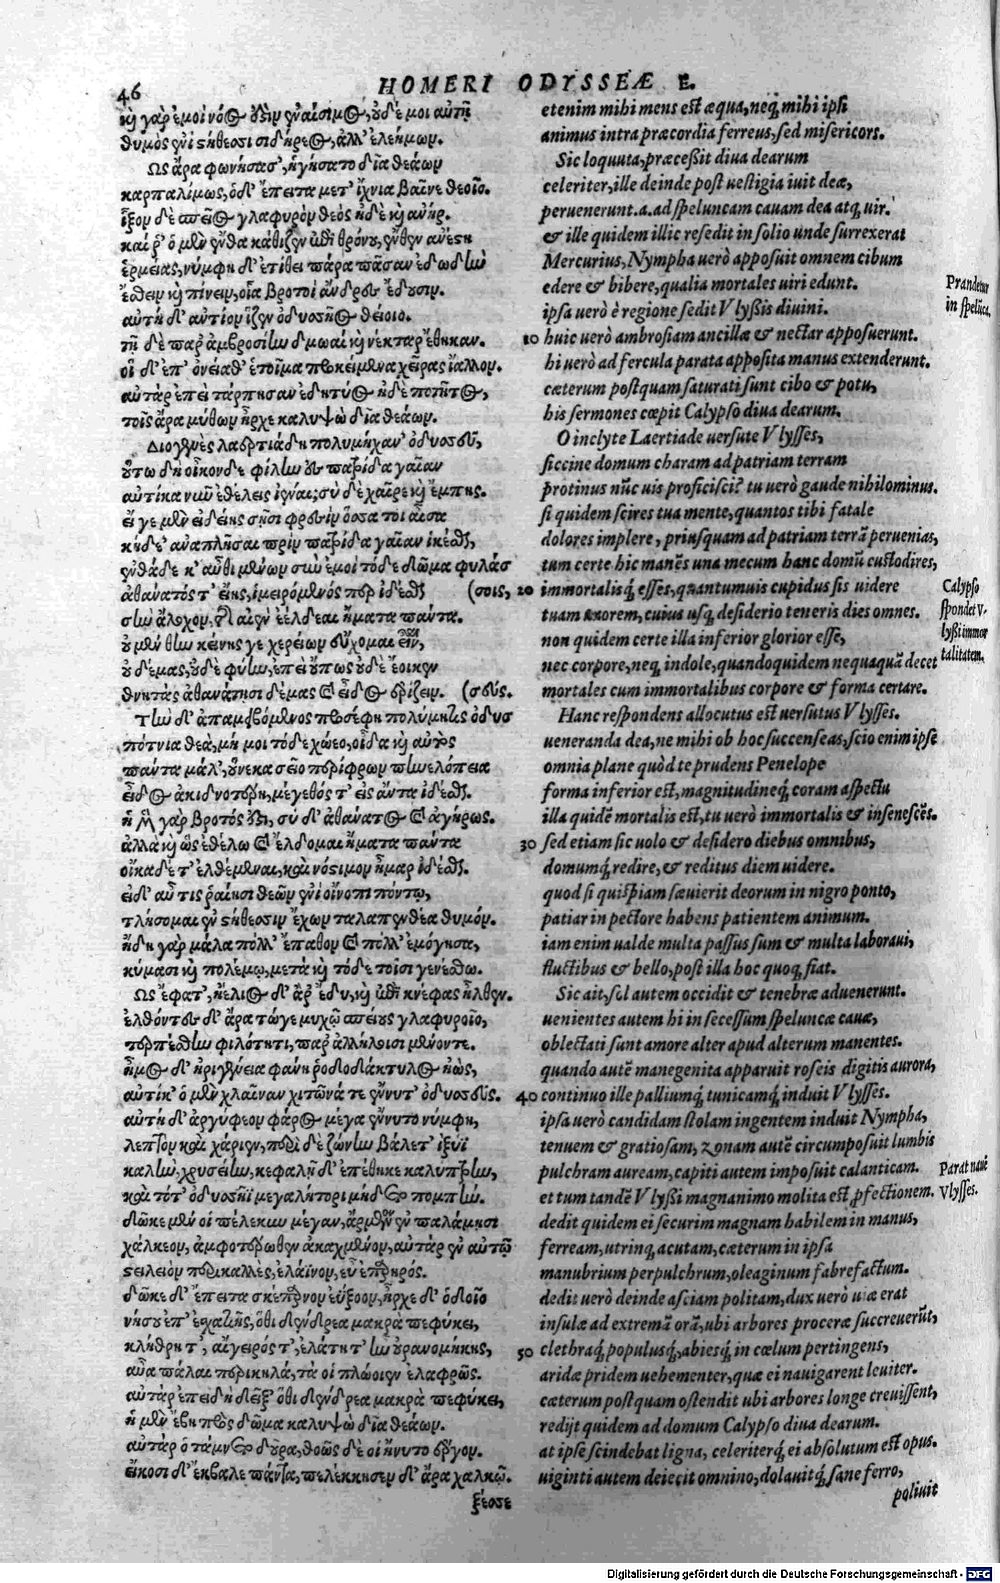 46
HOMERI ODYSSEÆ E.
καὶ γὰρ ἐμοὶ νόος ἐστὶν ἐναίσιμος, οὐδέ μοι αὐτῇ
θυμὸς ἐνὶ στήθεσσι σιδήρεος, ἀλλ' ἐλεήμων.
Ὣς ἄρα φωνήσασ', ἡγήσατο δῖα θεάων
καρπαλίμως, ὁ δ' ἔπειτα μετ' ἴχνια βαῖνε θεοῖο.
ἷξον δὲ σπεῖος γλαφυρὸν θεὸς ἠδὲ καὶ ἀνήρ.
καί ῥ' ὁ μὲν ἔνθα κάθιζεν ἐπὶ θρόνου, ἔνθεν ἀνέστη
ἑρμείας, νύμφη δ' ἐτίθει πάρα πᾶσαν ἐδωδὴν
ἔσθειν καὶ πίνειν, οἷα βροτοὶ ἄνδρες ἔδουσιν.
αὐτὴ δ' αὐτίον ἷζεν ὀδυσσῆος θείοιο.
τῇ δὲ παρ' ἀμβροσίην δμωαὶ καὶ νέκταρ ἔθηκαν.
οἳ δ' ἐπ' ὀνείαθ' ἑτοῖμα προκείμενα χεῖρας ἴαλλον.
αὐτὰρ ἐπεὶ τάρπησαν ἐδητύος ἠδὲ ποτῆτος,
τοῖς ἄρα μύθων ἦρχε καλυψὼ δῖα θεάων.
Διογενὲς λαερτιάδη πολυμήχαν' ὀδυσσεῦ,
οὕτω δὴ οἶκόνδε φίλην ἐς πατρίδα γαῖαν
αὐτίκα νῦν ἐθέλεις ἰέναι; σὺ δὲ χαῖρε καὶ ἔμπης.
εἴ γε μὲν εἰδείης σῇσι φρεσὶν ὅσσα τοι αἶσα
κήδε' ἀναπλῆσαι πρὶν πατρίδα γαῖαν ἱκέσθαι,
ἐνθάδε κ' αὖθι μένων σὺν ἐμοὶ τόδε δῶμα φυλάσ
ἀθανατός τ' εἴης, ἱμειρόμενός περ ἰδέσθαι (σοις,
σὴν ἄλοχον, τῆς αἰὲν ἐέλδεαι ἤματα πάντα.
οὐ μέν θην κείνης γε χερείων εὔχομαι εἶναι,
οὐ δέμας, οὐδὲ φυήν, ἐπεὶ οὔπως οὐδὲ ἔοικεν
θνητὰς ἀθανάτῃσι δέμας καὶ εἶδος ἐρίζειν. (σεύς.
Τὴν δ' ἀπαμειβόμενος προσέφη πολύμητις ὀδυσ
πότνια θεά, μή μοι τόδε χώεο, οἶδα καὶ αὐτὸς
πάντα μάλ', οὕνεκα σεῖο περίφρων πηνελόπεια
εἶδος ἀκιδνοτέρη, μέγεθός τ' εἰς ἄντα ἰδέσθαι.
ἡ μὲν γὰρ βροτός ἐστι, σὺ δ' ἀθάνατος καὶ ἀγήρως.
ἀλλὰ καὶ ὣς ἐθέλω καὶ ἔλδομαι ἤματα πάντα
οἴκαδέ τ' ἐλθέμεναι, καὶ νόστιμον ἦμαρ ἰδέσθαι.
εἰ δ' αὖ τις ῥαίῃσι θεῶν ἐνὶ οἴνοπι πόντῳ,
τλήσομαι ἐν στήθεσσιν ἔχων ταλαπενθέα θυμόν.
ἤδη γὰρ μάλα πόλλ' ἔπαθον καὶ πόλλ' ἐμόγησα,
κύμασι καὶ πολέμῳ, μετὰ καὶ τόδε τοῖσι γενέσθω.
Ὣς ἔφατ', ἠέλιος δ' ἄρ' ἔδυ, καὶ ἐπὶ κνέφας ἦλθεν.
ἐλθόντες δ' ἄρα τώγε μυχῷ σπείους γλαφυροῖο,
τερπέσθην φιλότητι, παρ' ἀλλήλοισι μένοντε.
ἦμος δ' ἠριγένεια φάνη ῥοδοδάκτυλος ἠώς,
αὐτίκ' ὁ μὲν χλαῖναν χιτῶνά τε ἕννυτ' ὀδυσσεύς.
αὐτὴ δ' ἀργύφεον φᾶρος μέγα ἕννυτο νύμφη,
λεπτὸν καὶ χάριεν, περὶ δὲ ζώνην βάλετ' ἰξυῖ
καλήν, χρυσείην, κεφαλῇ δ' ἐπέθηκε καλύπτρην,
καὶ τότ' ὀδυσσῆϊ μεγαλήτορι μήδετο πομπήν.
δῶκε μέν οἱ πέλεκυν μέγαν, ἄρμενον ἐν παλάμῃσι
χάλκεον, ἀμφοτέρωθεν ἀκαχμένον, αὐτὰρ ἐν αὐτῷ
στειλειὸν περικαλλὲς, ἐλάϊνον, εὖ ἐναρηρός.
δῶκε δ' ἔπειτα σκέπαρνον ἐΰξοον, ἦρχε δ' ὁδοῖο
νήσου ἐπ' ἐσχατιῆς, ὅθι δένδρεα μακρὰ πεφύκει,
κλήθρη τ', αἴγειρός τ', ἐλάτη τ' ἦν οὐρανομήκης,
αὖα πάλαι περίκηλα, τά οἱ πλώοιεν ἐλαφρῶς.
αὐτὰρ ἐπειδὴ δεῖξ' ὅθι δένδρεα μακρὰ πεφύκει,
ἡ μὲν ἔβη πρὸς δῶμα καλυψὼ δῖα θεάων.
αὐτὰρ ὁ τάμνετο δοῦρα, θοῶς δέ οἱ ἤνυτο ἔργον.
εἴκοσι δ' ἔκβαλε πάντα, πελέκκησεν δ' ἄρα χαλκῷ.
ξέσσε
etenim mihi mens est æqua, neq; mihi ipsi
animus intra præcordia ferreus, sed misericors.
Sic loquuta, præcessit diua dearum
celeriter, ille deinde post uestigia iuit deæ,
peruenerunt .a. ad speluncam cauam dea atq; uir.
& ille quidem illic resedit in solio unde surrexerat
Mercurius, Nympha uerò apposuit omnem cibum
edere & bibere, qualia mortales uiri edunt.
ipsa uerò è regione sedit Vlyssis diuini.
10 huic uerò ambrosiam ancillæ & nectar apposuerunt.
hi uerò ad fercula parata apposita manus extenderunt.
cæterum postquam saturati sunt cibo & potu,
his sermones cœpit Calypso diua dearum.
O inclyte Laertiade uersute Vlysses,
siccine domum charam ad patriam terram
protinus nũc uis proficisci? tu uerò gaude nihilominus.
si quidem scires tua mente, quantos tibi fatale
dolores implere, priusquam ad patriam terrã peruenias,
tum certe hic manẽs una mecum hanc domũ custodires,
20 immortalisq; esses, quantumuis cupidus sis uidere
tuam uxorem, cuius usq; desiderio teneris dies omnes.
non quidem certe illa inferior glorior esse,
nec corpore, neq; indole, quandoquidem nequaquã decet
mortales cum immortalibus corpore & forma certare.
Hanc respondens allocutus est uersutus Vlysses.
ueneranda dea, ne mihi ob hoc succenseas, scio enim ipse
omnia plane quòd te prudens Penelope
forma inferior est, magnitudineq; coram aspectu
illa quidẽ mortalis est, tu uerò immortalis & insenescẽs.
30 sed etiam sic uolo & desidero diebus omnibus,
domumq; redire, & reditus diem uidere.
quod si quispiam sæuierit deorum in nigro ponto,
patiar in pectore habens patientem animum.
iam enim ualde multa passus sum & multa laboraui,
fluctibus & bello, post illa hoc quoq; fiat.
Sic ait, sol autem occidit & tenebræ aduenerunt.
uenientes autem hi in secessum speluncæ cauæ,
oblectati sunt amore alter apud alterum manentes.
quando autẽ manegenita apparuit roseis digitis aurora,
40 continuo ille palliumq; tunicamq; induit Vlysses.
ipsa uerò candidam stolam ingentem induit Nympha,
tenuem & gratiosam, zonam autẽ circumposuit lumbis
pulchram auream, capiti autem imposuit calanticam.
et tum tandẽ Vlyssi magnanimo molita est ꝓfectionem.
dedit quidem ei securim magnam habilem in manus,
ferream, utrinq; acutam, cæterum in ipsa
manubrium perpulchrum, oleaginum fabrefactum.
dedit uerò deinde asciam politam, dux uerò uiæ erat
insulæ ad extremã orã, ubi arbores proceræ succreuerũt,
50 clethraq; populusq;, abiesq; in cœlum pertingens,
aridæ pridem uehementer, quæ ei nauigarent leuiter.
cæterum postquam ostendit ubi arbores longe creuissent,
redijt quidem ad domum Calypso diua dearum.
at ipse scindebat ligna, celeriterq; ei absolutum est opus.
uiginti autem deiecit omnino, dolauitq; sane ferro,
poliuit
Prandetur
in spelũca.
Calypso
spondet V-
lyssi immor
talitatem.
Parat nauẽ
Vlysses.
Digitalisierung gefördert durch die Deutsche Forschungsgemeinschaft - DFG